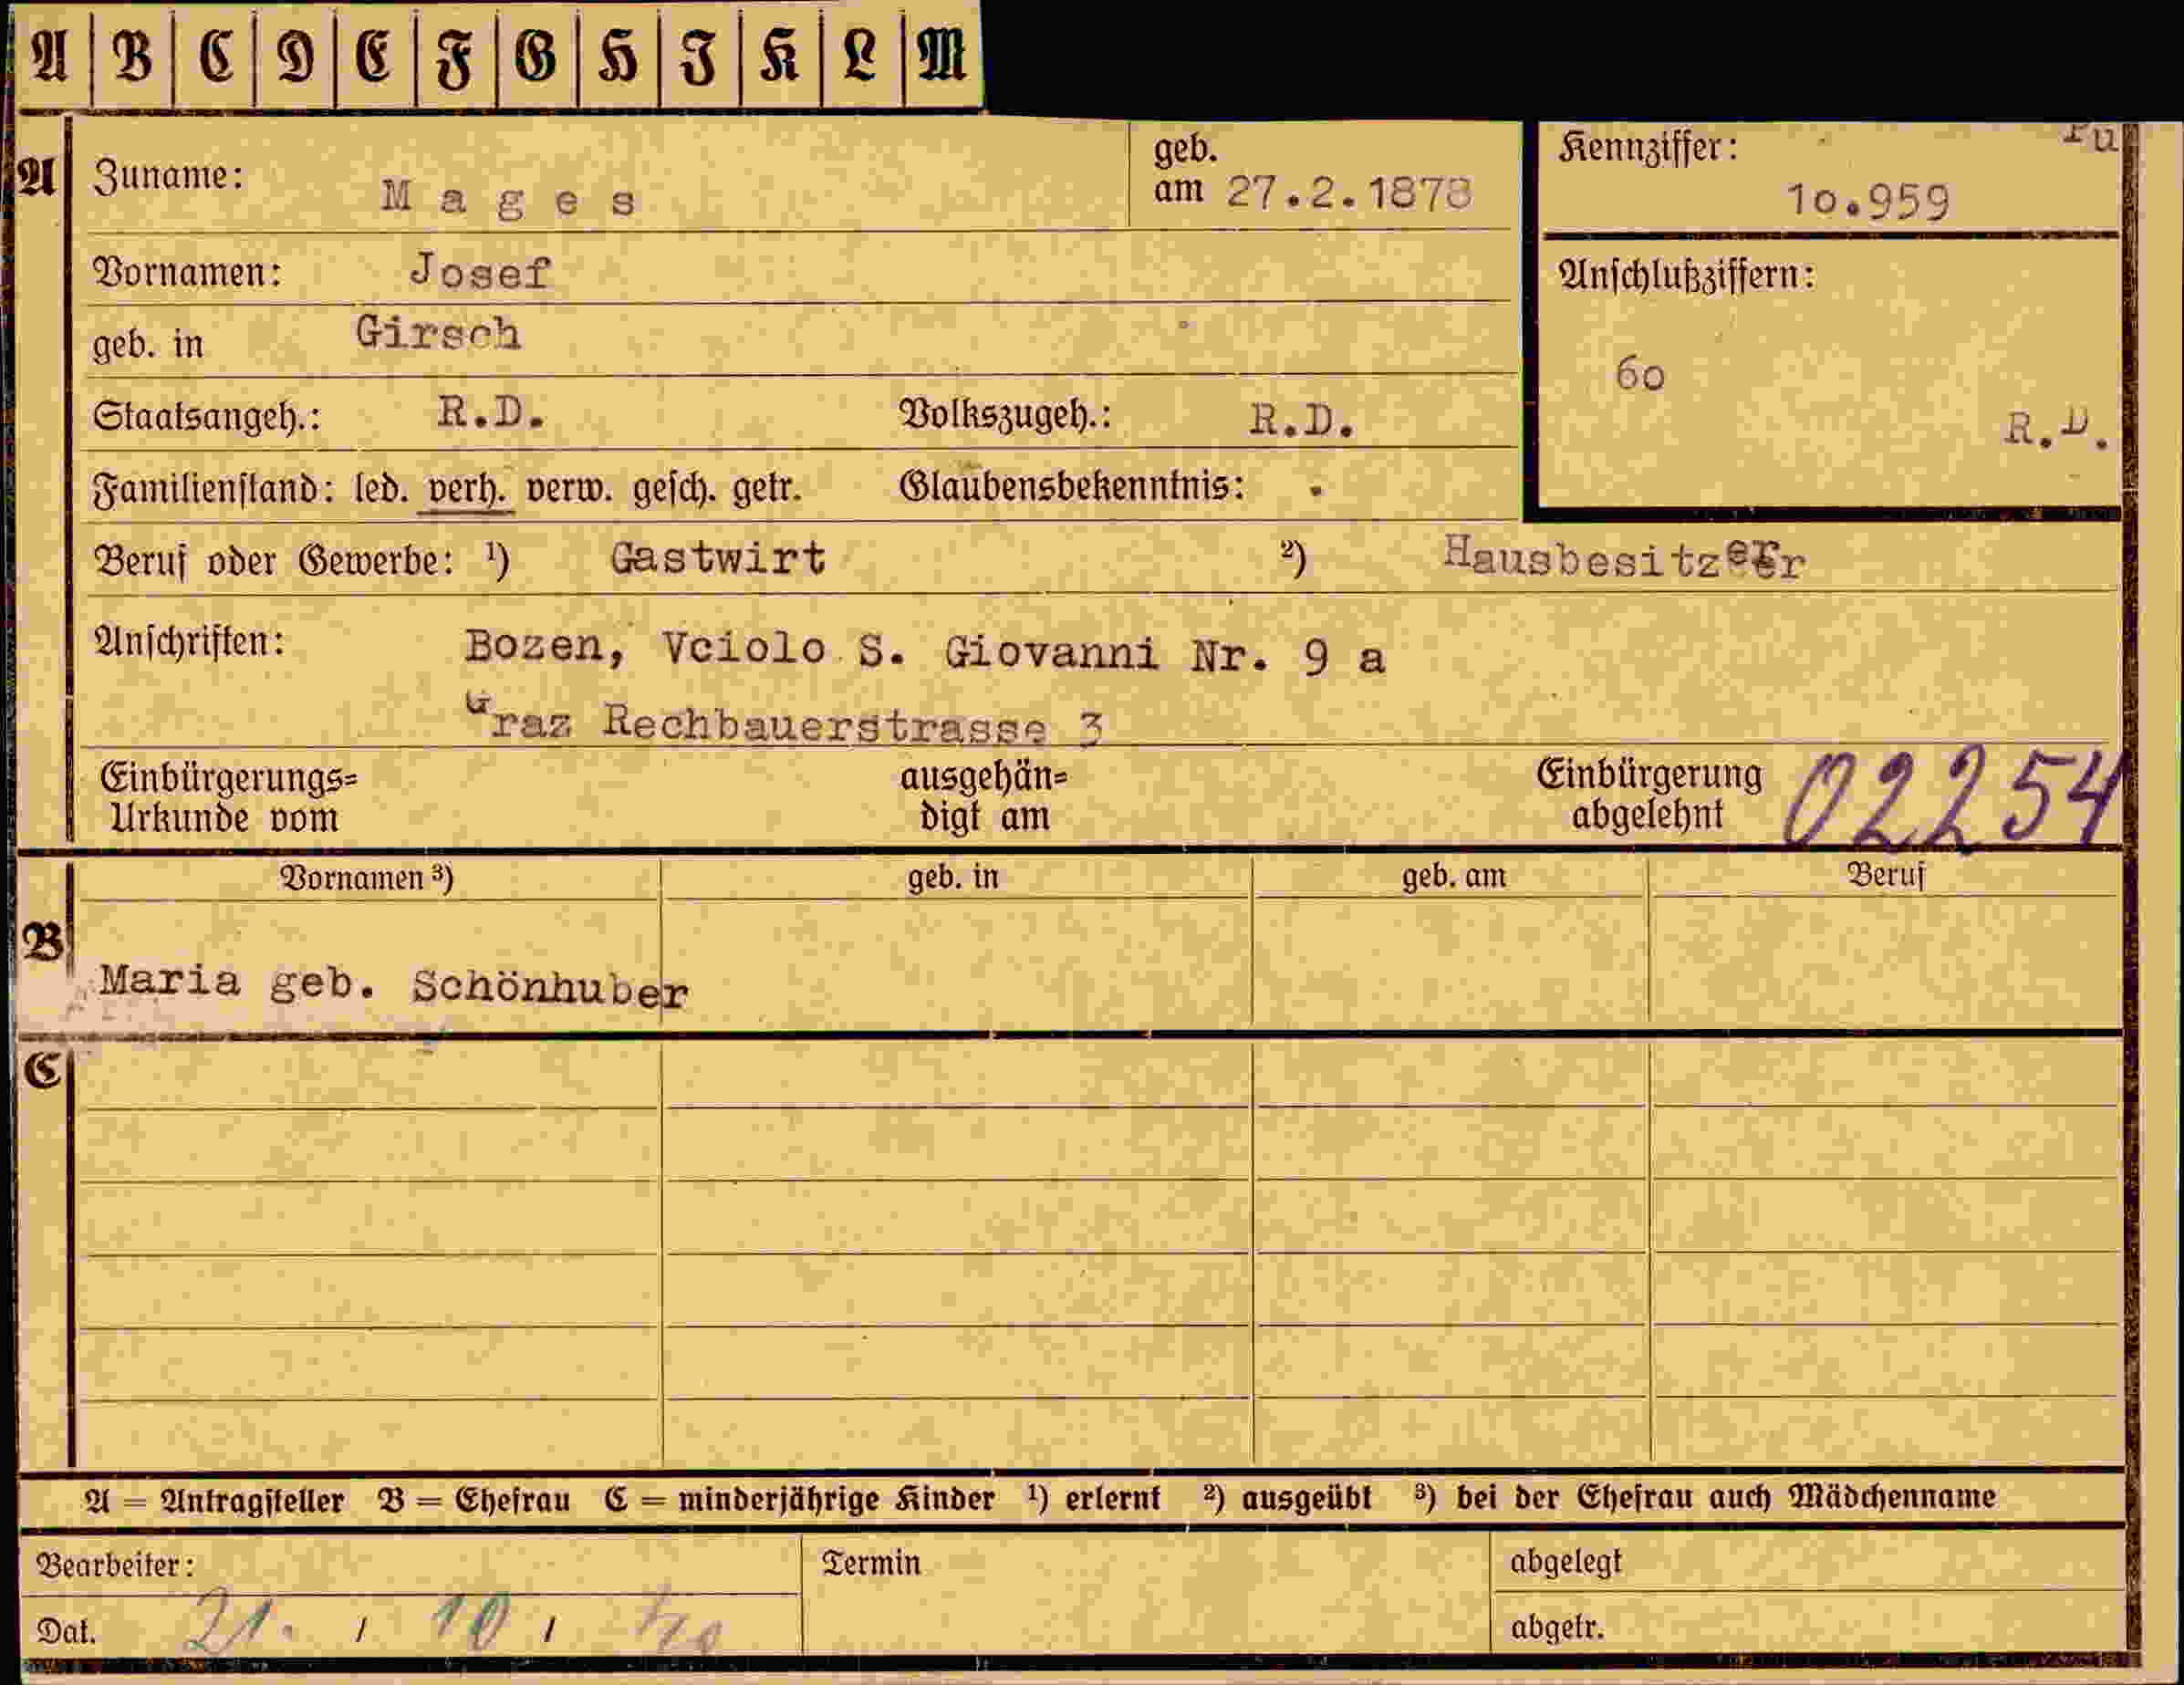 A B C D E F G H I K L M
A Zuname: Mages geb. am 27.2.1878
Kennziffer: 10.959
Vornamen: Josef
Anschlußziffern:
geb. in Girsch
60
Staatsangeh.: R.D. Volkszugeh.: R.D.
R.D.
Familienstand: led. verh. verw. gesch. getr. Glaubensbekenntnis: .
Beruf oder Gewerbe: ¹) Gastwirt ²) Hausbesitzer
Anschriften: Bozen, Vciolo S. Giovanni Nr. 9 a
Graz Rechbauerstrasse 3
Einbürgerungs= ausgehän= Einbürgerung 02254
Urkunde vom digt am abgelehnt
Vornamen ³) geb. in geb. am Beruf
B
Maria geb. Schönhuber
C
A = Antragsteller B = Ehefrau C = minderjährige Kinder ¹) erlernt ²) ausgeübt ³) bei der Ehefrau auch Mädchenname
Bearbeiter: Termin abgelegt
Dat. 21. / 10 / abgetr.